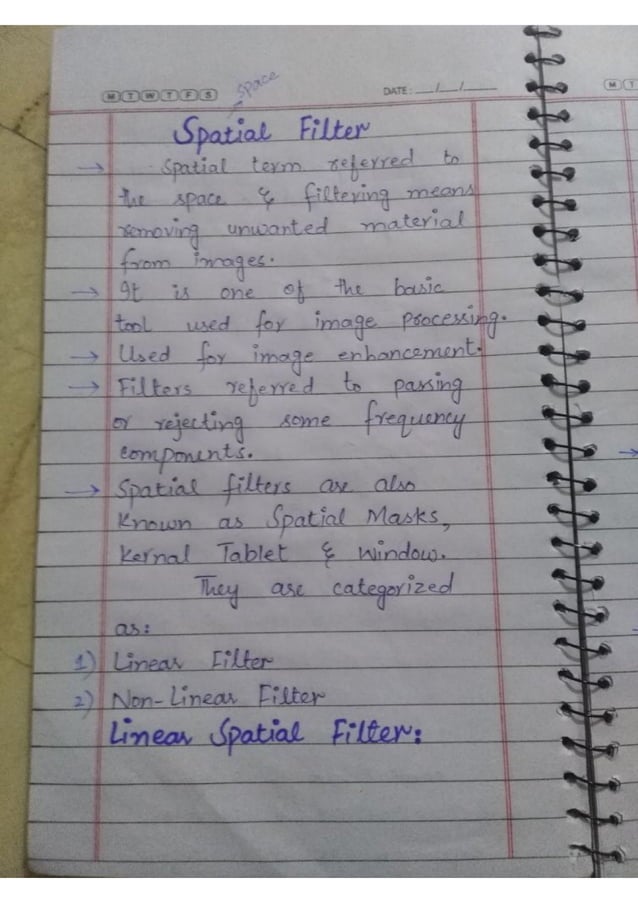 M T W T F S
space
DATE: __/__/__
Spatial Filter
→ Spatial term referred to
the space & filtering means
removing unwanted material
from images.
→ It is one of the basic
tool used for image processing.
→ Used for image enhancement.
→ Filters referred to passing
or rejecting some frequency
components.
→ Spatial filters are also
Known as Spatial Masks,
Kernal Tablet & window.
They are categorized
as:
1) Linear Filter
2) Non-Linear Filter
Linear Spatial Filter:
M T
→